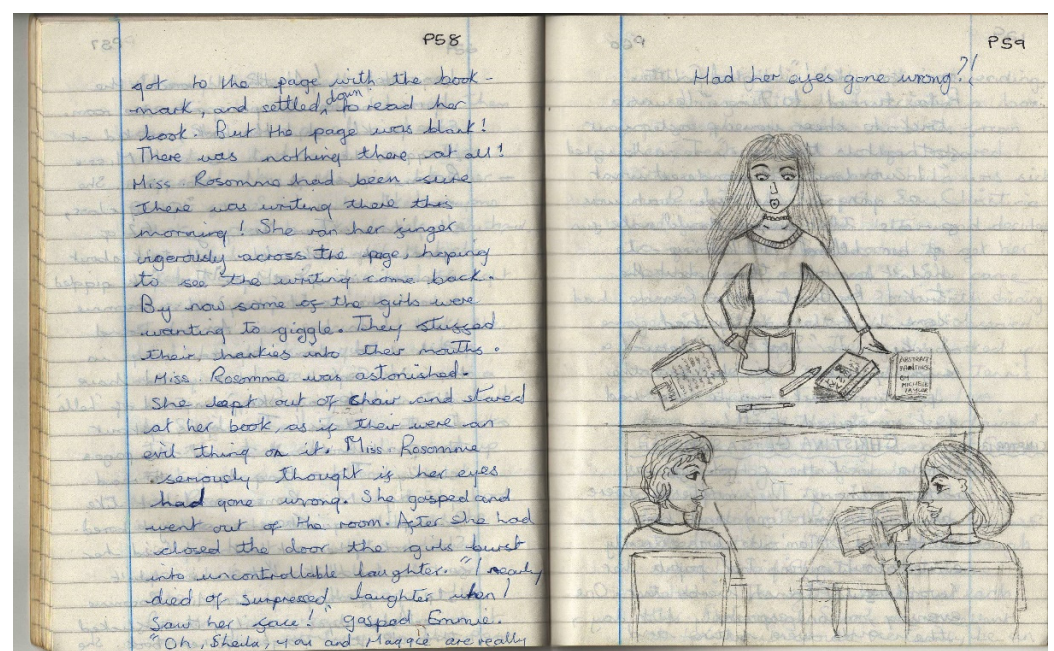 P58
got to the page with the book-
mark, and settled down to read her
book. But the page was blank!
There was nothing there at all!
Miss Rosomme had been sure
there was writing there this
morning! She ran her finger
vigerously across the page, hoping
to see the writing come back.
By now some of the girls were
wanting to giggle. They stuffed
their hankies into their mouths.
Miss Rosomme was astonished.
She lept out of chair and stared
at her book as if ther were an
evil thing on it. Miss Rosomme
seriously thought if her eyes
had gone wrong. She gasped and
went out of the room. After she had
closed the door the girls burst
into uncontrollable laughter. "I nearly
died of surpressed laughter when I
saw her face!" gasped Emmie.
"Oh, Sheila, you and Maggie are really
P59
Had her eyes gone wrong?!
ABSTRACT
PAINTINGS
BY
MICHELE
TAYLOR